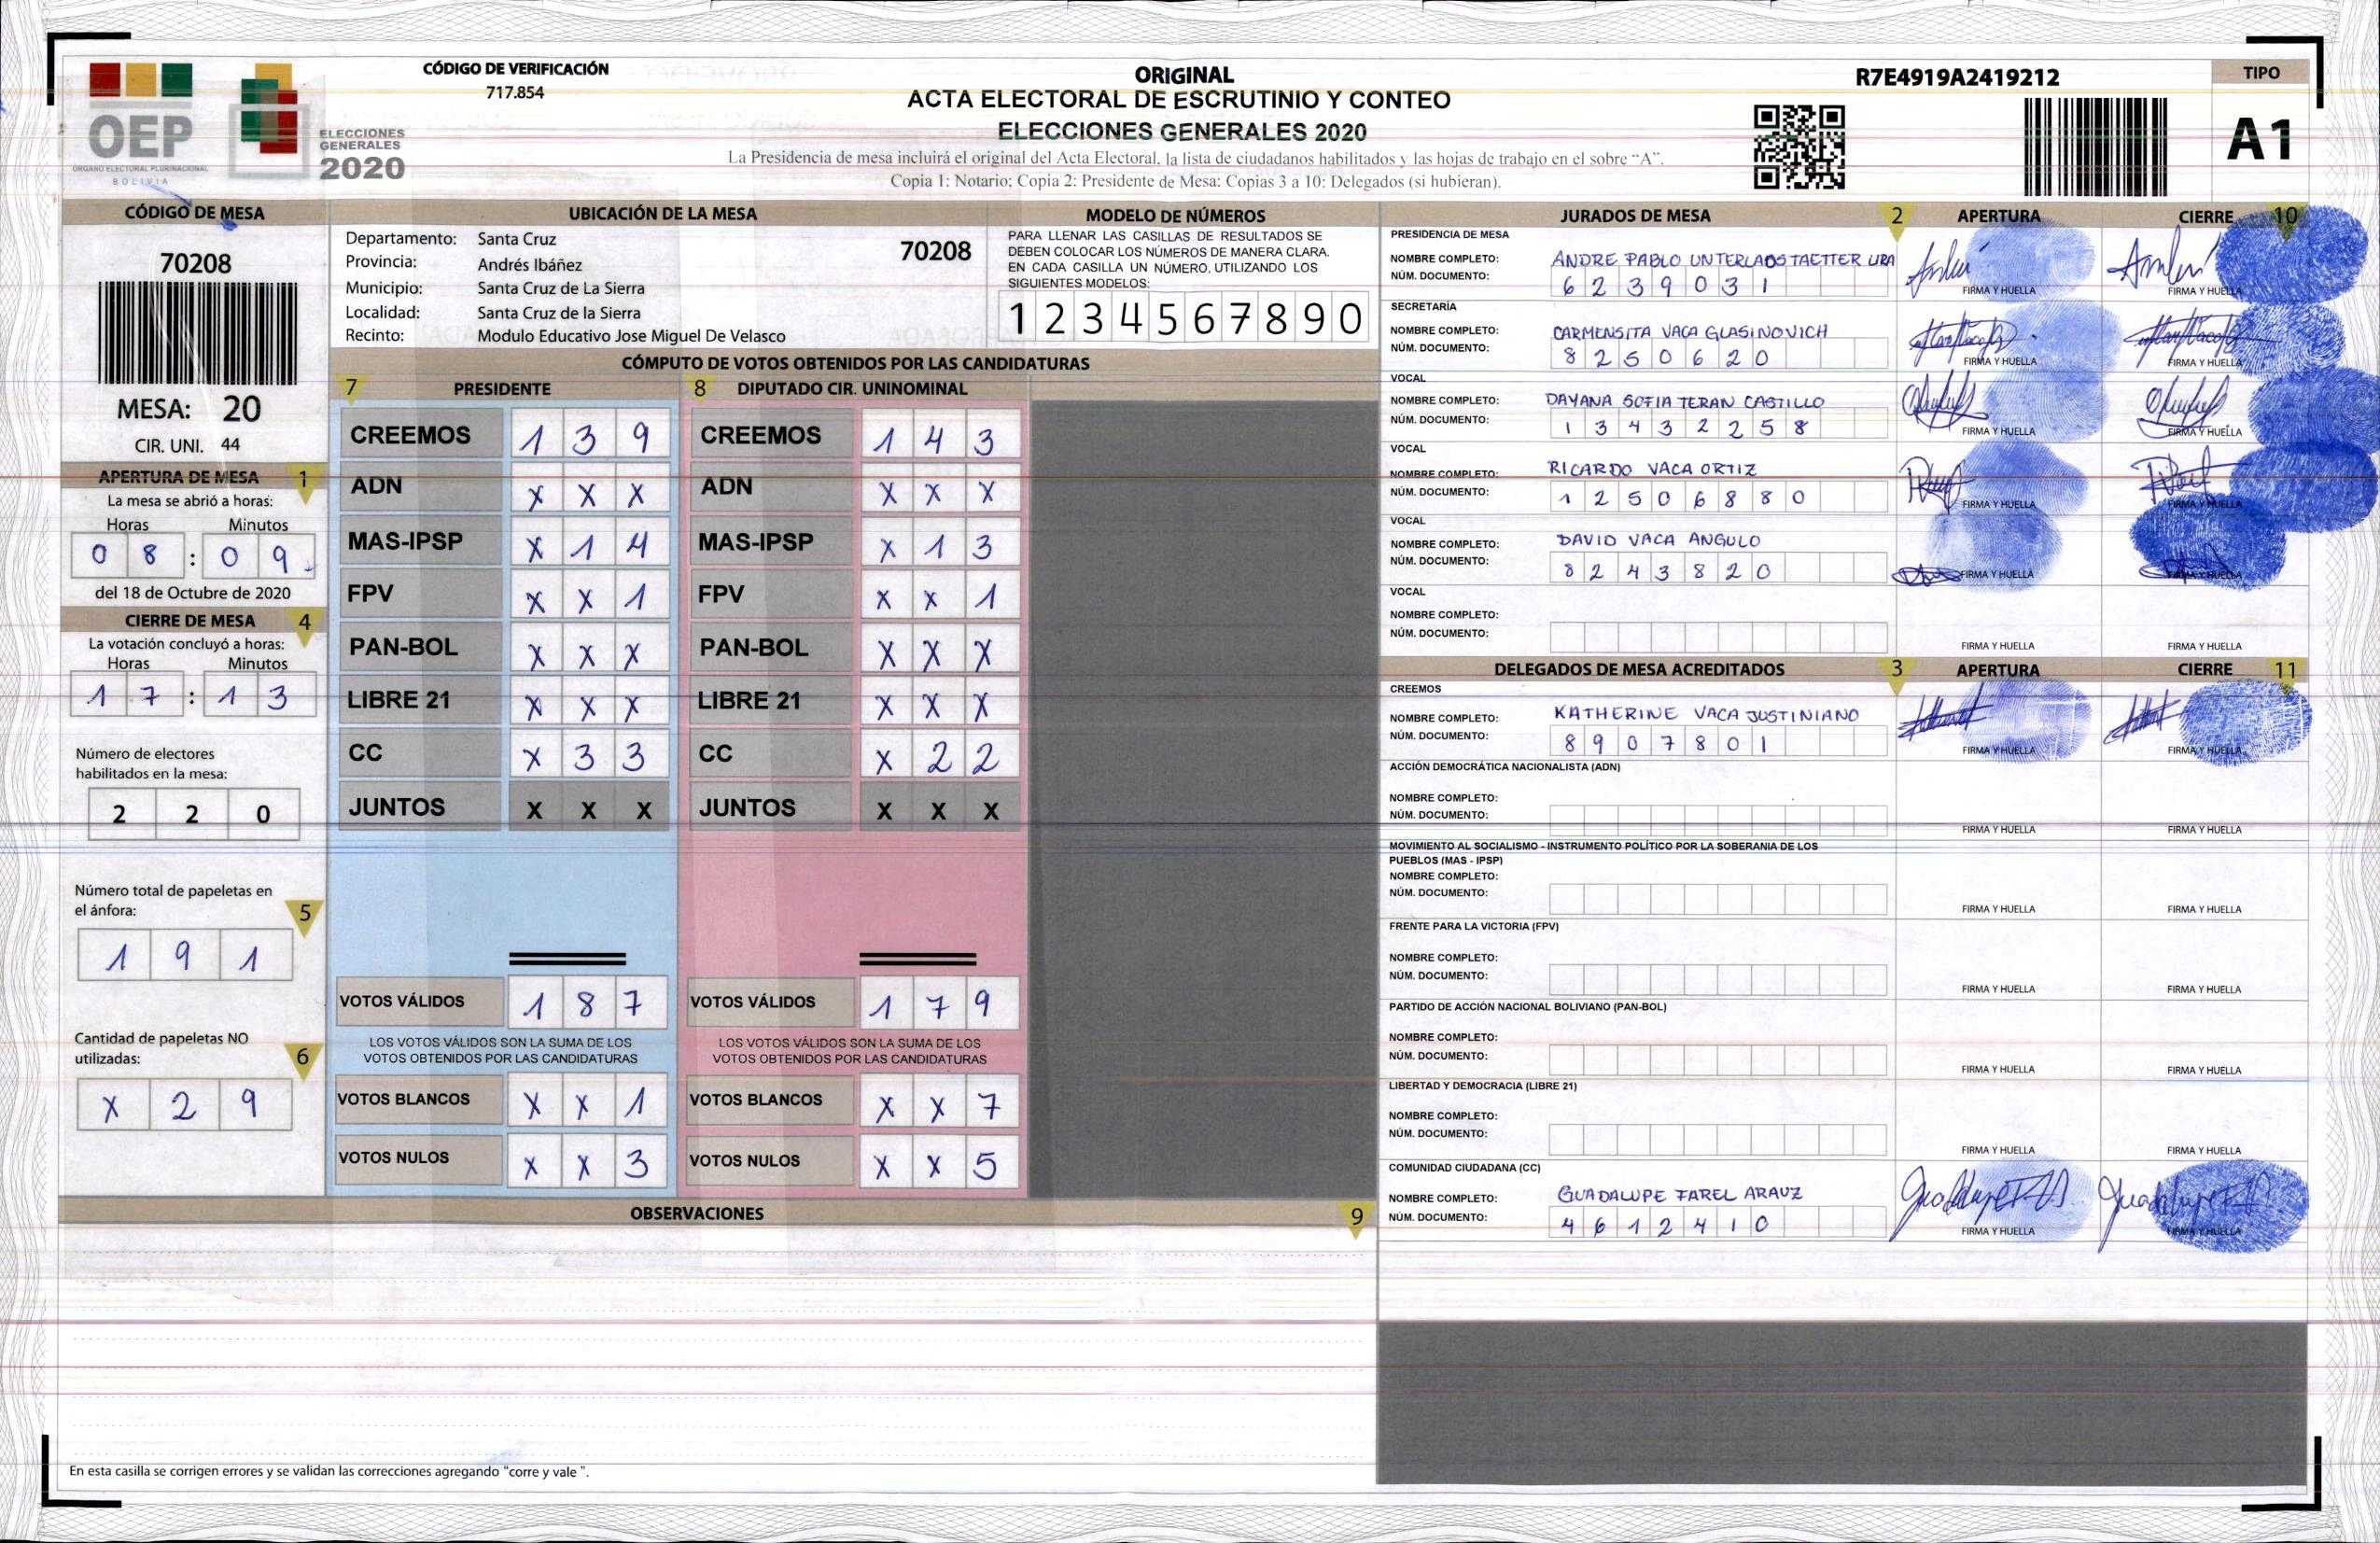 OEP
ÓRGANO ELECTORAL PLURINACIONAL
BOLIVIA
ELECCIONES
GENERALES
2020
CÓDIGO DE VERIFICACIÓN
717.854
ORIGINAL
ACTA ELECTORAL DE ESCRUTINIO Y CONTEO
ELECCIONES GENERALES 2020
La Presidencia de mesa incluirá el original del Acta Electoral, la lista de ciudadanos habilitados y las hojas de trabajo en el sobre “A”.
Copia 1: Notario; Copia 2: Presidente de Mesa; Copias 3 a 10: Delegados (si hubieran).
R7E4919A2419212
TIPO
A1
CÓDIGO DE MESA
70208
MESA: 20
CIR. UNI. 44
APERTURA DE MESA 1
La mesa se abrió a horas:
Horas Minutos
0 8 : 0 9
del 18 de Octubre de 2020
CIERRE DE MESA 4
La votación concluyó a horas:
Horas Minutos
1 7 : 1 3
Número de electores
habilitados en la mesa:
2 2 0
Número total de papeletas en
el ánfora: 5
1 9 1
Cantidad de papeletas NO
utilizadas: 6
X 2 9
UBICACIÓN DE LA MESA
Departamento: Santa Cruz 70208
Provincia: Andrés Ibáñez
Municipio: Santa Cruz de La Sierra
Localidad: Santa Cruz de la Sierra
Recinto: Modulo Educativo Jose Miguel De Velasco
MODELO DE NÚMEROS
PARA LLENAR LAS CASILLAS DE RESULTADOS SE
DEBEN COLOCAR LOS NÚMEROS DE MANERA CLARA.
EN CADA CASILLA UN NÚMERO, UTILIZANDO LOS
SIGUIENTES MODELOS:
1 2 3 4 5 6 7 8 9 0
CÓMPUTO DE VOTOS OBTENIDOS POR LAS CANDIDATURAS
7 PRESIDENTE 8 DIPUTADO CIR. UNINOMINAL
CREEMOS 1 3 9 CREEMOS 1 4 3
ADN X X X ADN X X X
MAS-IPSP X 1 4 MAS-IPSP X 1 3
FPV X X 1 FPV X X 1
PAN-BOL X X X PAN-BOL X X X
LIBRE 21 X X X LIBRE 21 X X X
CC X 3 3 CC X 2 2
JUNTOS X X X JUNTOS X X X
VOTOS VÁLIDOS 1 8 7 VOTOS VÁLIDOS 1 7 9
LOS VOTOS VÁLIDOS SON LA SUMA DE LOS LOS VOTOS VÁLIDOS SON LA SUMA DE LOS
VOTOS OBTENIDOS POR LAS CANDIDATURAS VOTOS OBTENIDOS POR LAS CANDIDATURAS
VOTOS BLANCOS X X 1 VOTOS BLANCOS X X 7
VOTOS NULOS X X 3 VOTOS NULOS X X 5
OBSERVACIONES 9
En esta casilla se corrigen errores y se validan las correcciones agregando "corre y vale ".
JURADOS DE MESA 2 APERTURA CIERRE 10
PRESIDENCIA DE MESA
NOMBRE COMPLETO: ANDRE PABLO UNTERLADSTAETTER URA
NÚM. DOCUMENTO: 6 2 3 9 0 3 1
FIRMA Y HUELLA FIRMA Y HUELLA
SECRETARÍA
NOMBRE COMPLETO: CARMENSITA VACA GLASINOVICH
NÚM. DOCUMENTO: 8 2 5 0 6 2 0
FIRMA Y HUELLA FIRMA Y HUELLA
VOCAL
NOMBRE COMPLETO: DAYANA SOFIA TERAN CASTILLO
NÚM. DOCUMENTO: 1 3 4 3 2 2 5 8
FIRMA Y HUELLA FIRMA Y HUELLA
VOCAL
NOMBRE COMPLETO: RICARDO VACA ORTIZ
NÚM. DOCUMENTO: 1 2 5 0 6 8 8 0
FIRMA Y HUELLA FIRMA Y HUELLA
VOCAL
NOMBRE COMPLETO: DAVID VACA ANGULO
NÚM. DOCUMENTO: 8 2 4 3 8 2 0
FIRMA Y HUELLA FIRMA Y HUELLA
VOCAL
NOMBRE COMPLETO:
NÚM. DOCUMENTO:
FIRMA Y HUELLA FIRMA Y HUELLA
DELEGADOS DE MESA ACREDITADOS 3 APERTURA CIERRE 11
CREEMOS
NOMBRE COMPLETO: KATHERINE VACA JUSTINIANO
NÚM. DOCUMENTO: 8 9 0 7 8 0 1
FIRMA Y HUELLA FIRMA Y HUELLA
ACCIÓN DEMOCRÁTICA NACIONALISTA (ADN)
NOMBRE COMPLETO:
NÚM. DOCUMENTO:
FIRMA Y HUELLA FIRMA Y HUELLA
MOVIMIENTO AL SOCIALISMO - INSTRUMENTO POLÍTICO POR LA SOBERANIA DE LOS
PUEBLOS (MAS - IPSP)
NOMBRE COMPLETO:
NÚM. DOCUMENTO:
FIRMA Y HUELLA FIRMA Y HUELLA
FRENTE PARA LA VICTORIA (FPV)
NOMBRE COMPLETO:
NÚM. DOCUMENTO:
FIRMA Y HUELLA FIRMA Y HUELLA
PARTIDO DE ACCIÓN NACIONAL BOLIVIANO (PAN-BOL)
NOMBRE COMPLETO:
NÚM. DOCUMENTO:
FIRMA Y HUELLA FIRMA Y HUELLA
LIBERTAD Y DEMOCRACIA (LIBRE 21)
NOMBRE COMPLETO:
NÚM. DOCUMENTO:
FIRMA Y HUELLA FIRMA Y HUELLA
COMUNIDAD CIUDADANA (CC)
NOMBRE COMPLETO: GUADALUPE FAREL ARAUZ
NÚM. DOCUMENTO: 4 6 1 2 4 1 0
FIRMA Y HUELLA FIRMA Y HUELLA